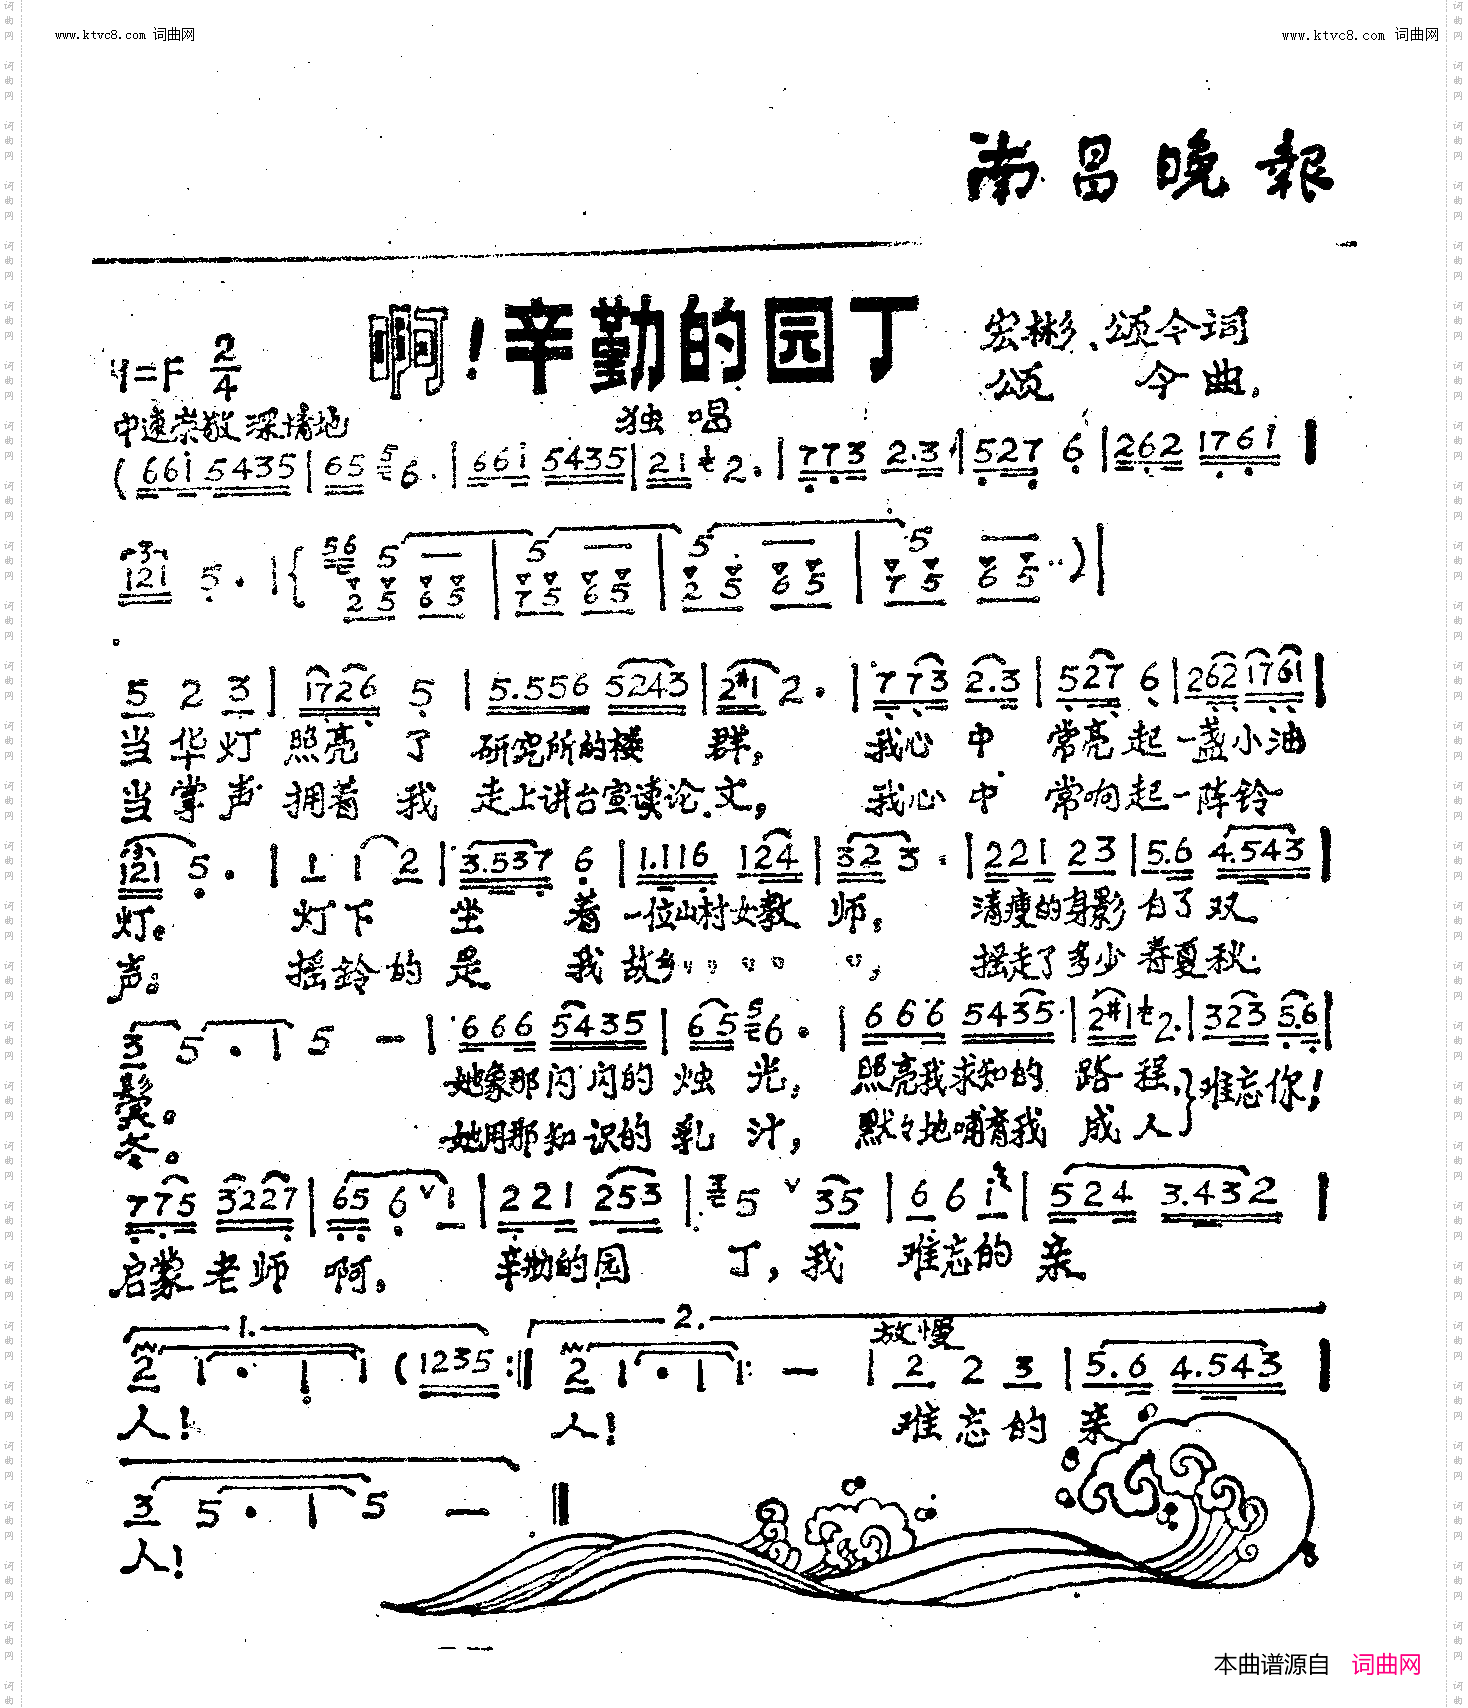 www.ktvc8.com 词曲网
www.ktvc8.com 词曲网
南昌晚報
啊！辛勤的园丁
宏彬、颂今词
颂 今曲.
1=F 2/4
中速崇敬深情地
独唱
(661 5435 | 65 5 6. | 661 5435 | 21 7 2. | 773 2.3 | 527 6 | 262 1761 |
3
121 5. | { 56 5 — | 5 — | 5 — | 5 — ..) |
2 5 6 5 | 7 5 6 5 | 2 5 6 5 | 7 5 6 5
5 2 3 | 1726 5 | 5.556 5243 | 2#1 2. | 773 2.3 | 527 6 | 262 1761 |
当华灯 照亮 了 研究所的楼 群， 我心中 常亮起一盏小油
当掌声 拥着 我 走上讲台宣读论文， 我心中 常响起一阵铃
121 5. | 1 1 2 | 3.537 6 | 1.116 124 | 32 3. | 221 23 | 5.6 4.543 |
灯。 灯下 坐 着 一位山村女教 师， 清瘦的身影 白了双
声。 摇铃的 是 我 故乡〃〃〃〃 〃， 摇走了多少 春夏秋
3 5. 1 5 — | 666 5435 | 65 5 6. | 666 5435 | 2#1 2. | 323 5.6 |
鬓。 她象那闪闪的 烛 光， 照亮我求知的 路 程，}难忘你！
冬。 她用那知识的 乳 汁， 默々地哺育我 成 人}
775 3227 | 65 6 ∨ 1 | 221 253 | 3 5 ∨ 35 | 6 6 1 | 524 3.432 |
启蒙老师 啊， 辛勤的园 丁，我 难忘的 亲
1. 2.
放慢
2 1. 1 1 (1235 :‖ 2 1. 1 1 — | 2 2 3 | 5.6 4.543 |
人！ 人！ 难忘的 亲
3 5. 1 5 — ‖
人！
本曲谱源自 词曲网